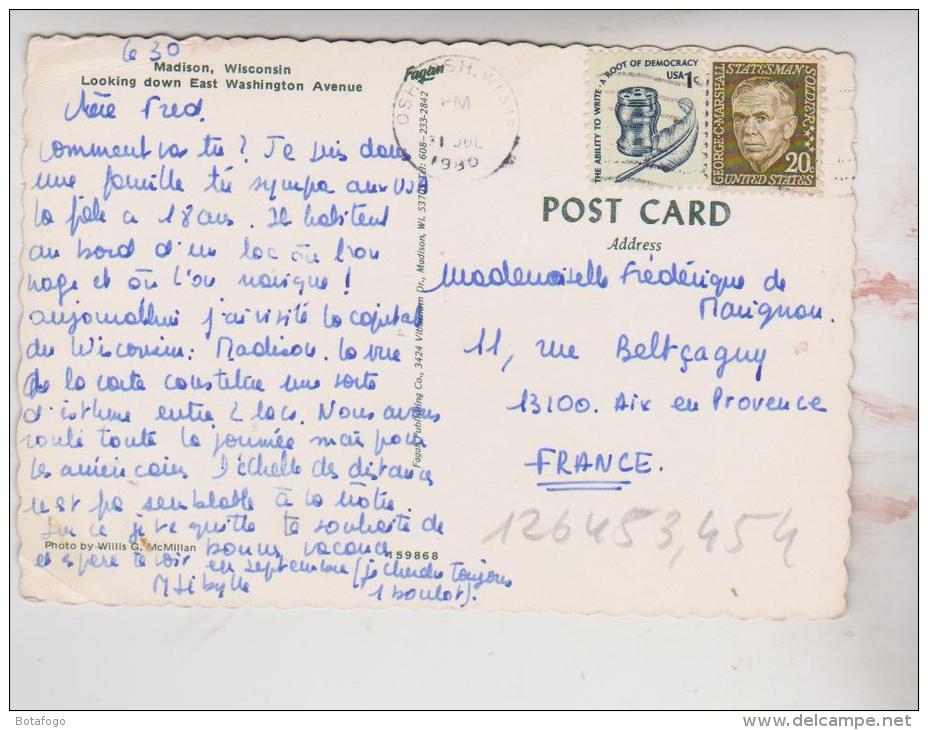 le 30
Madison, Wisconsin
Looking down East Washington Avenue
chère Fred,
comment vas tu? Je suis dans
une famille très sympa aux USA
la fille a 18 ans. Ils habitent
au bord d'un lac où l'on
nage et où l'on navigue!
aujourd'hui j'ai visité la capitale
du Wisconsin: Madison. la vue
de la carte constitue une sorte
d'isthme entre 2 lacs. Nous avons
roulé toute la journée mais pour
les américains l'échelle des distances
n'est pas semblable à la nôtre.
Sur ce je te quitte te souhaite de
Photo by Willis G. McMillan
bonnes vacances
159868
et espère te voir en septembre (je cherche toujours
1 boulot).
Fagan
Fagan Publishing Co., 3424 Dr., Madison, WI. 5370 Tel: 608-233-2842
OSHKOSH, WIS
PM
31 JUL
1980
THE ABILITY TO WRITE · A ROOT OF DEMOCRACY
USA 1c
GEORGE C. MARSHALL STATESMAN SOLDIER
20c
UNITED STATES
POST CARD
Address
Mademoiselle Frédérique de
Marignan.
11, rue Beltçaguy
13100. Aix en Provence
FRANCE.
126453,454
Botafogo
www.delcampe.net